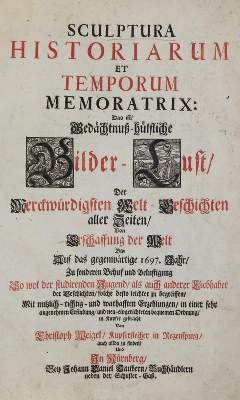 SCULPTURA
HISTORIARUM
ET
TEMPORUM
MEMORATRIX:
Das ist/
Gedächtnuß-hülfliche
Bilder-Lust/
Der
Merckwürdigsten Welt-Geschichten
aller Zeiten/
Von
Erschaffung der Welt
Bis
Auf das gegenwärtige 1697. Jahr/
Zu sonderen Behuf und Belustigung
So wol der studirenden Jugend/ als auch anderer Liebhaber
der Geschichten/ solche desto leichter zu begreiffen/
Mit nutzlich-richtig- und warhafften Erzehlungen/ in einer sehr
angenehmen Erfindung/ und neu-eingerichteten bequemen Ordnung/
in Kupfer gebracht
Von
Christoph Weigel/ Kupferstecher in Regenspurg/
auch allda zu finden/
Und
In Nürnberg/
Bey Johann Daniel Taubers/ Buchhändlern
neben der Schuster-Gaß.